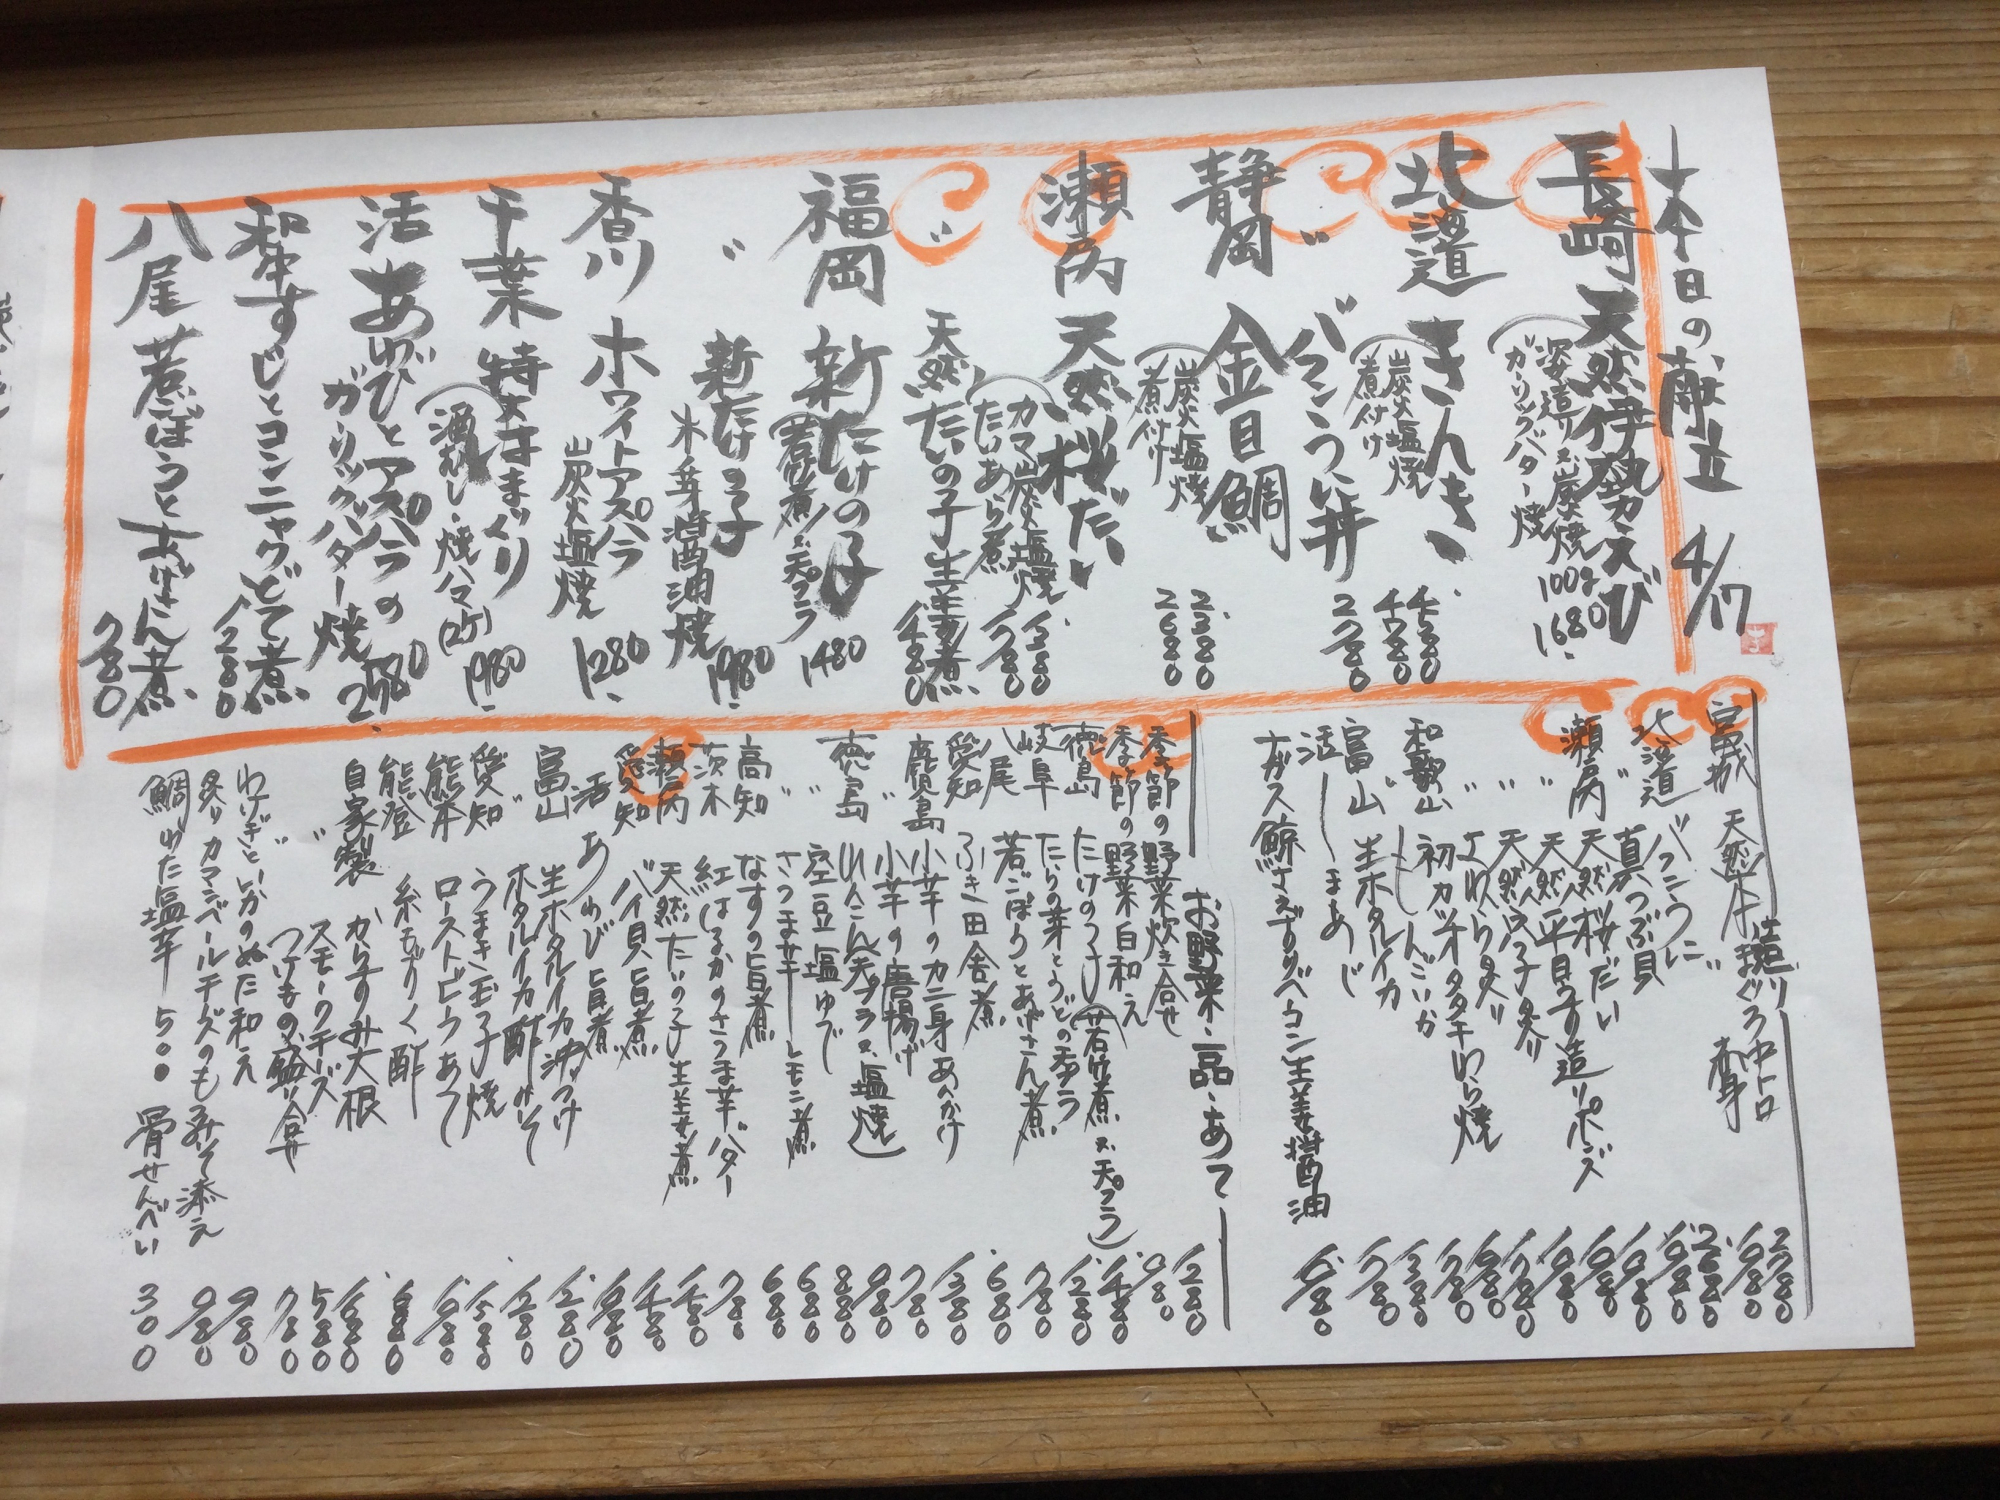 本日の献立 4/17
長崎 天然伊勢えび
姿造り又は炭焼 100g
ガーリックバター焼 1680.
北海道 きんき
炭火塩焼 4580
煮付け 4780
〃 バフンうに丼 2780
静岡 金目鯛
炭火塩焼 2380
煮付け 2680
瀬戸内 天然桜だい
カマ炭火塩焼 1380
たいあら煮 1780
〃 天然たいの子生姜煮 1480
福岡 新たけの子
若煮又天プラ 1480
〃 新たけの子
木の芽醤油焼 1980
香川 ホワイトアスパラ
炭火塩焼 1280.
千葉 特大はまぐり
酒むし・焼ハマ(2ケ) 1980.
活あわびとアスパラの
ガーリックバター焼 2580
和牛すじとコンニャクどて煮 1280
八尾 若ごぼうとあげさん煮 780
造り
宮城 天然本まぐろ中トロ 2780
赤身 1980
北海道 バフンうに 2680
〃 真つぶ貝 1980
瀬戸内 天然桜だい 1980
〃 天然平目うす造りポンズ 1980
〃 天然穴子炙り 1980
〃 さわら炙り 1780
和歌山 初カツオタタキわら焼 1980
もんごいか 1780
富山 生ホタルイカ 1380
活〆まあじ 1780
ナガス鯨さえずりベーコン生姜醤油 1680
お野菜・一品・あて
季節の野菜炊き合せ 1280
季節の野菜白和え 980
徳島 たけのこ(若竹煮又天プラ) 1480
岐阜 たらの芽とうどの天プラ 1280
八尾 若ごぼうとあげさん煮 780
愛知 ふき田舎煮 680
鹿児島 小芋のカニ身あんかけ 1380
〃 小芋の唐揚げ 780
徳島 れんこん天プラ又塩焼 980
〃 空豆塩ゆで 880
〃 さつま芋レモン煮 680
高知 なすの旨煮 680
茨木 紅はるかのさつま芋バター 780
瀬戸内 天然たいの子生姜煮 1480
愛知 バイ貝旨煮 1480
活あわび旨煮 1980
富山 生ホタルイカ沖づけ 1280
〃 ホタルイカ酢みそ 1280
愛知 うまき玉子焼 1580
熊本 ローストビーフあて 1980
能登 糸もずく酢 680
自家製 からすみ大根 1680
〃 スモークチーズ 580
〃 つけもの盛り合せ 780
わけぎといかのぬた和え 980
炙りカマンベールチーズのもろみそ添え 980
鯛わた塩辛 500 骨せんべい 300